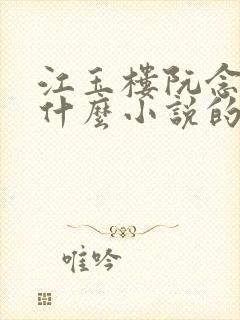 江玉樓阮念
什麼小說的
唯吟